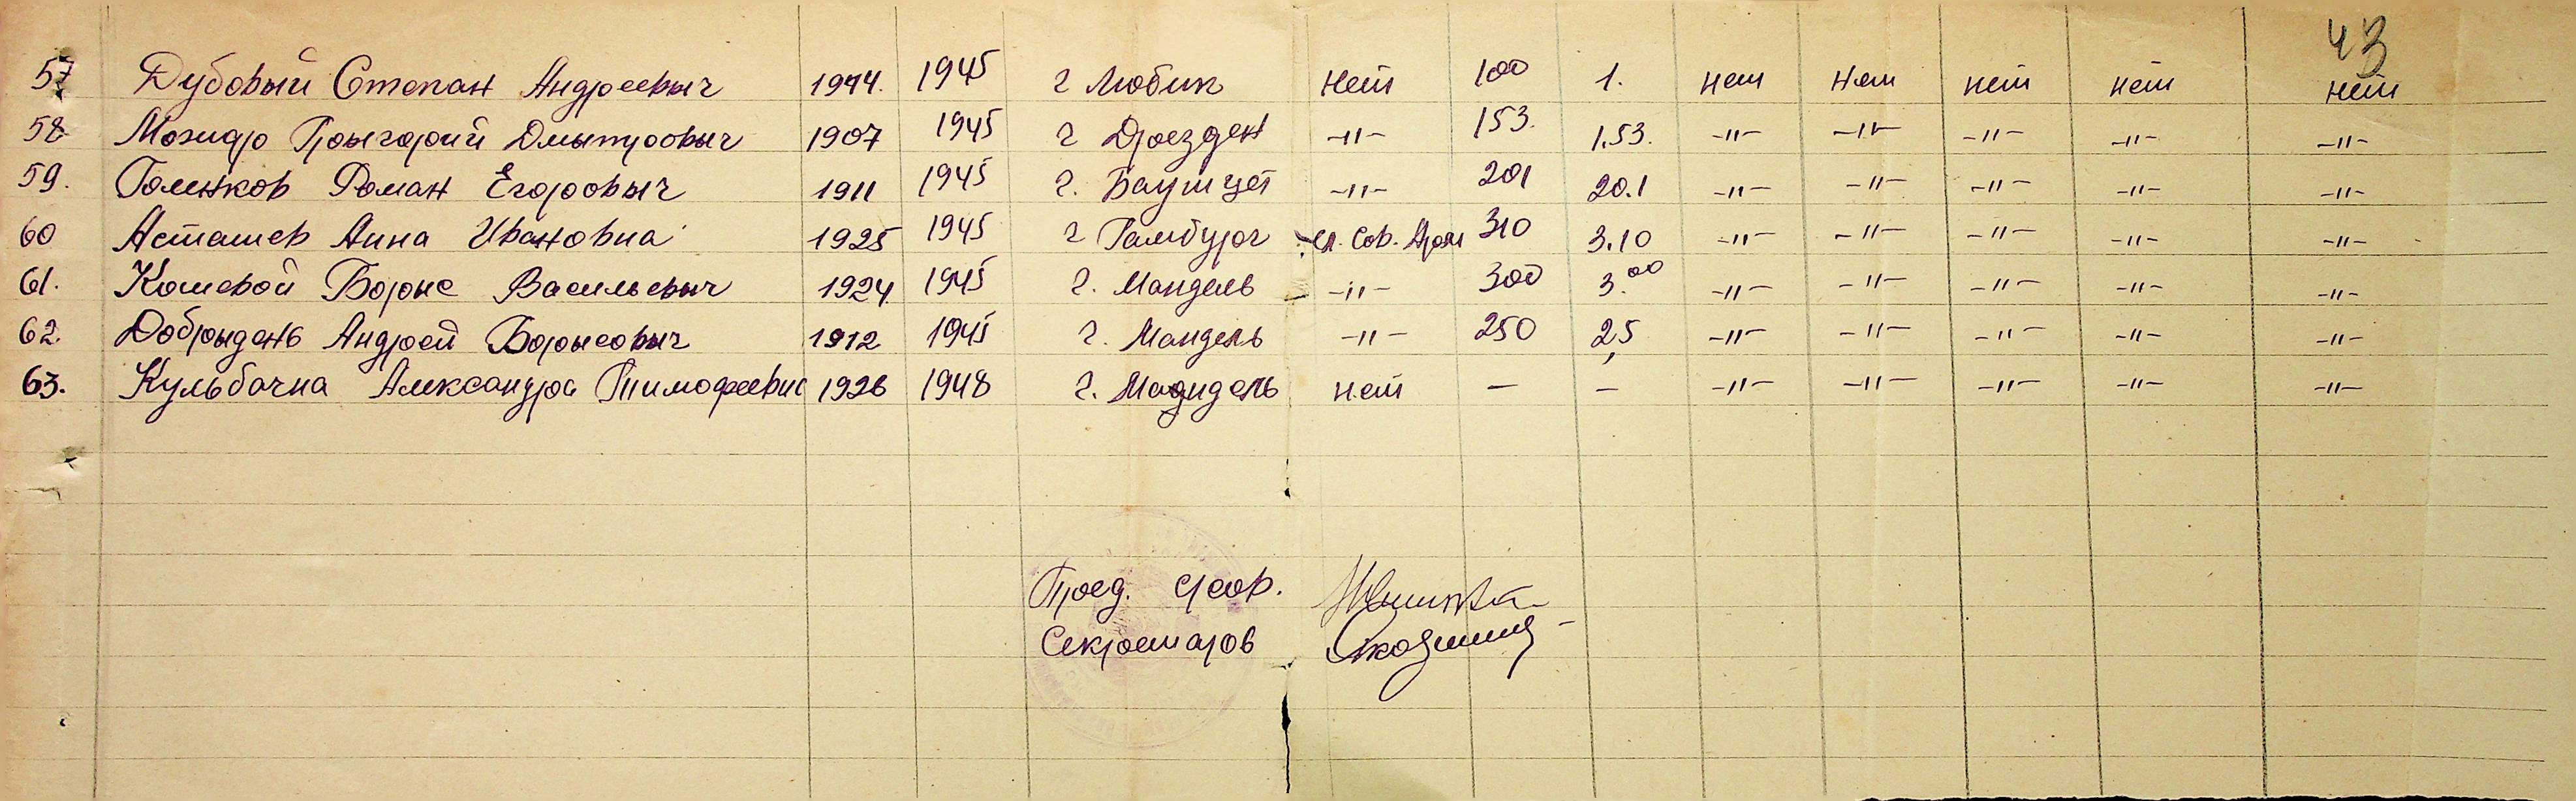 43
57 Дубовый Степан Андреевыч 1944. 1945 г Любик нет 100 1. нет нет нет нет нет
58 Можидр Грыгорий Дмытровыч 1907 1945 г Дрезден -"- 153. 1,53. -"- -"- -"- -"- -"-
59. Голенков Роман Егоровыч 1911 1945 г. Баутцет -"- 201 20.1 -"- -"- -"- -"- -"-
60 Асташев Анна Ивановна 1925 1945 г Гамбург сл. Сов. Арм 310 3.10 -"- -"- -"- -"- -"-
61. Кошевой Борыс Васильевыч 1924. 1945 г. Мандель -"- 300 3.00 -"- -"- -"- -"- -"-
62. Добрыдень Андрей Борысовыч 1912 1945 г. Мандель -"- 250 2,5 -"- -"- -"- -"- -"-
63. Кульбачна Александра Тимофеевна 1926 1948 г. Мандель нет — — -"- -"- -"- -"- -"-
Пред. с/сов.
Секретарь